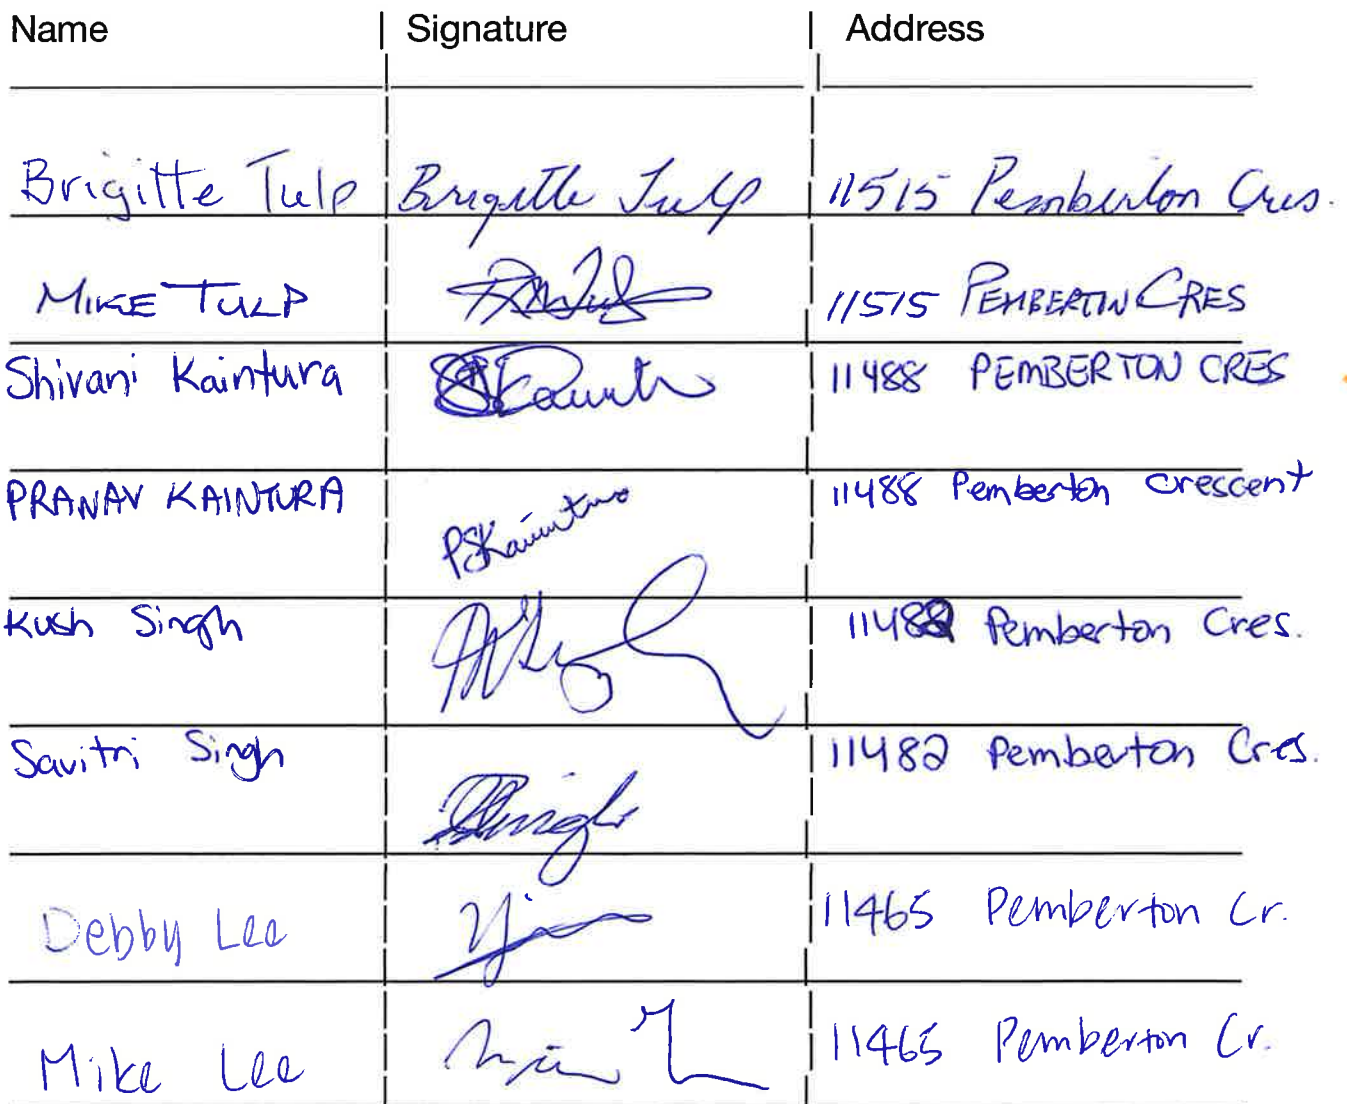 Name | Signature | Address
Brigitte Tulp | Brigitte Tulp | 11515 Pemberton Cres.
MIKE TULP | 11515 PEMBERTIN CRES
Shivani Kaintura | 11488 PEMBERTON CRES
PRANAV KAINTURA | PSKaintura | 11488 Pemberton crescent
Kush Singh | Pemberton Cres.
Savitri Singh | 11482 Pemberton Cres.
Debby Lee | 11465 Pemberton Cr.
Mike Lee | 11465 Pemberton Cr.